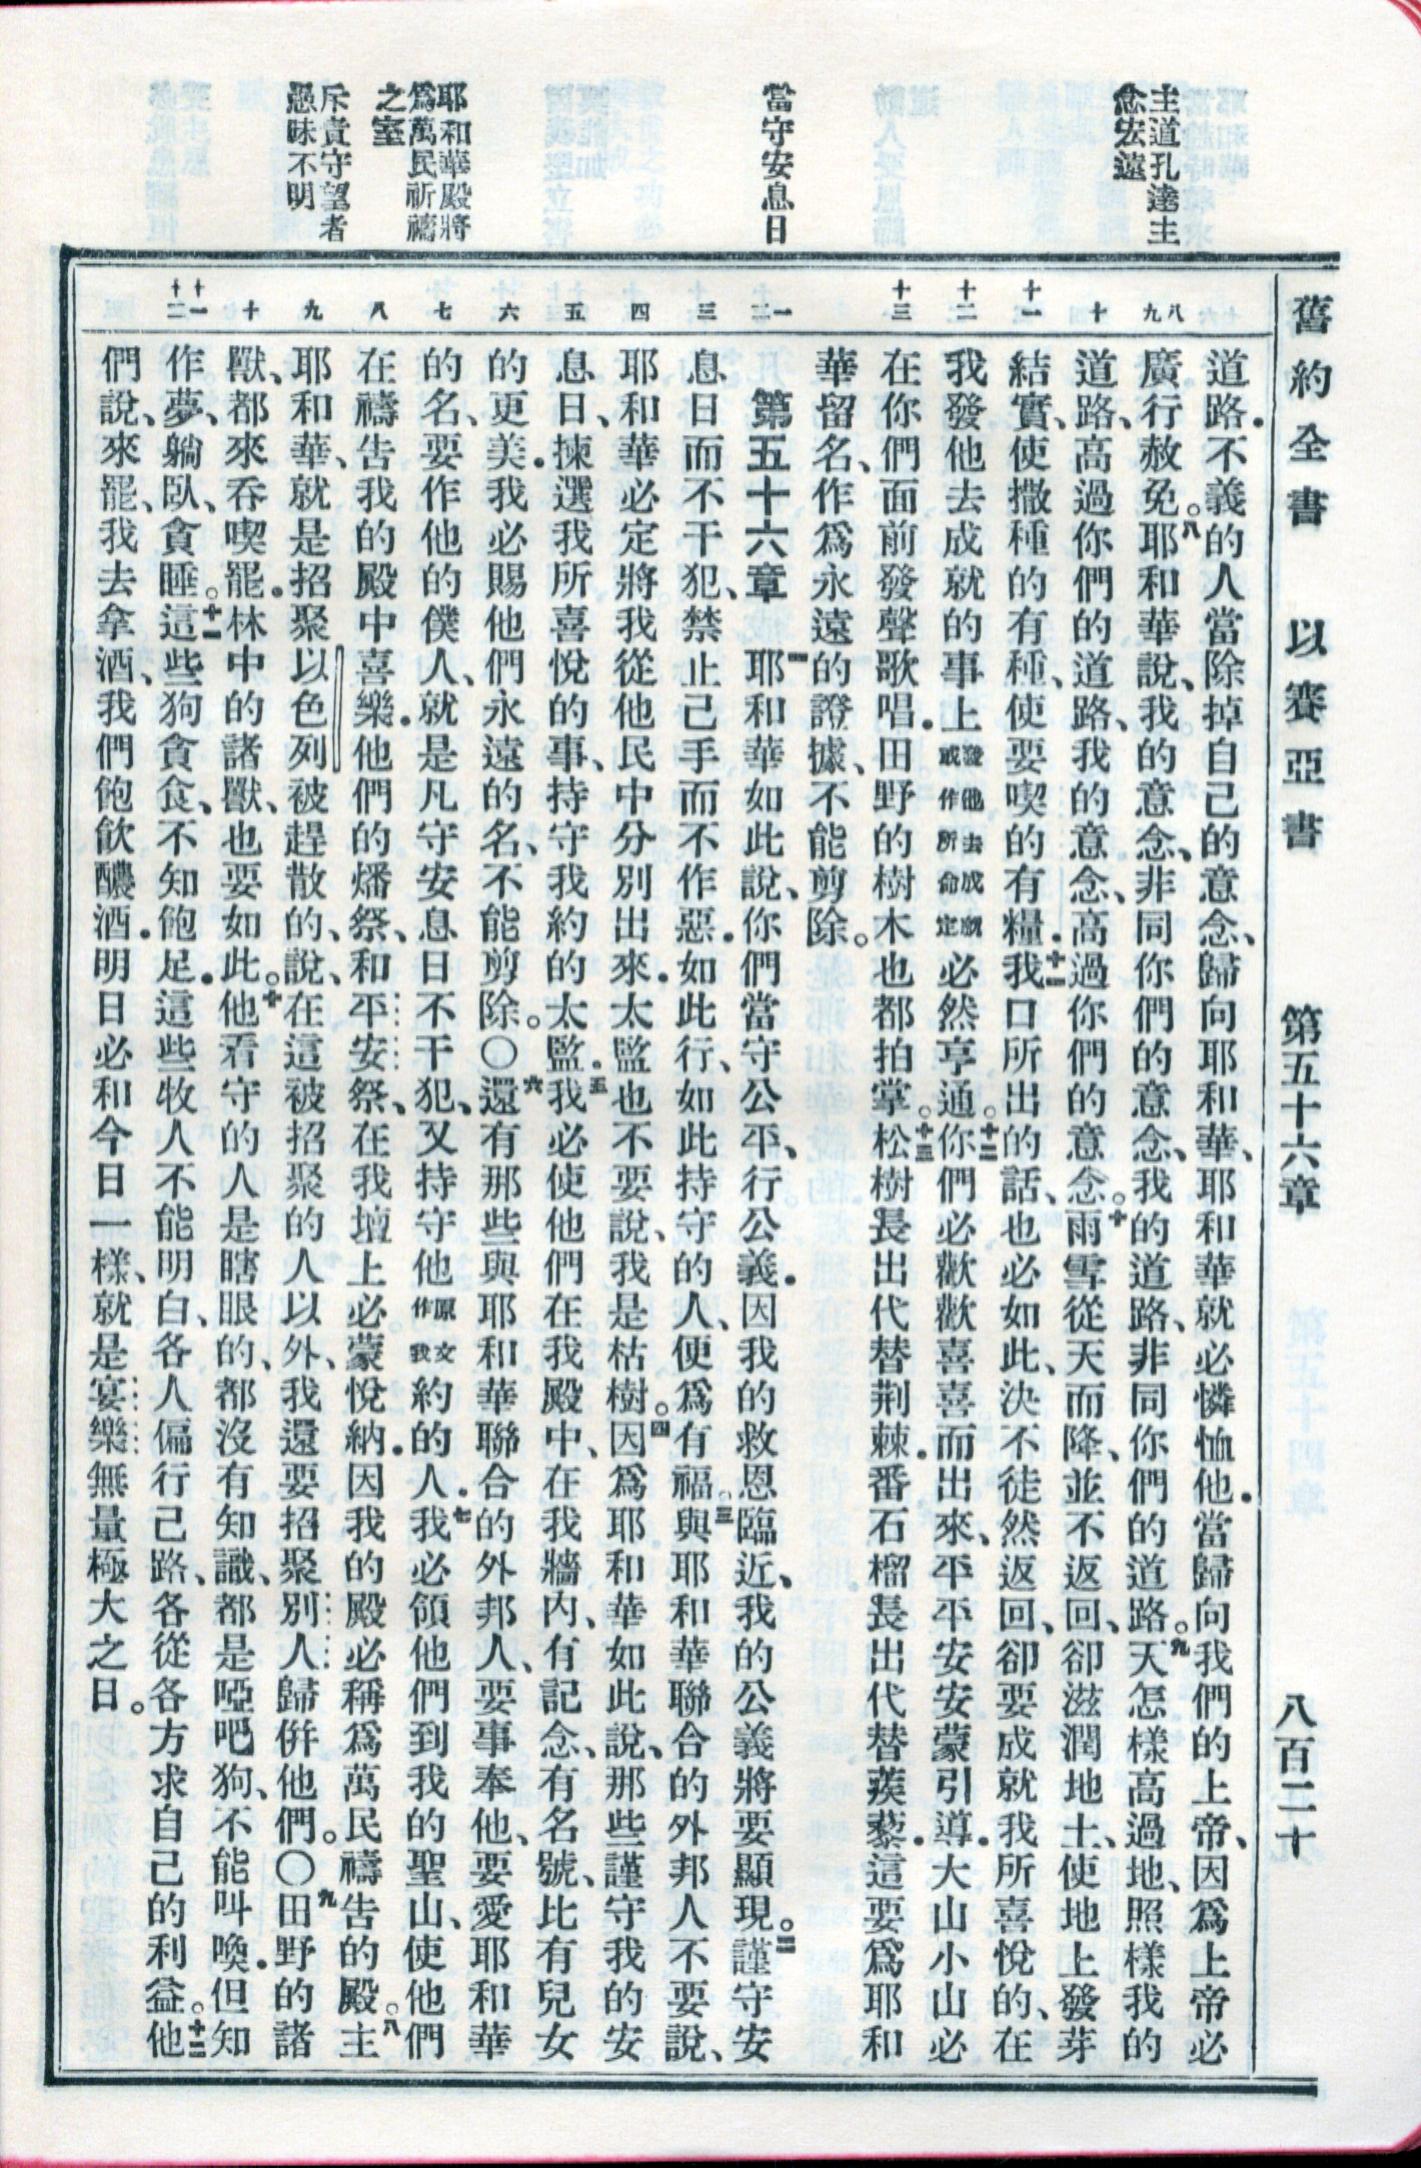 舊約全書　以賽亞書　第五十六章　八百二十
主道孔邃主
念宏遠
當守安息日
耶和華殿將
爲萬民祈禱
之室
斥責守望者
愚昧不明
八
九
十
十一
十二
十三
一
二
三
四
五
六
七
八
九
十
十一
十二
道路．不義的人當除掉自己的意念、歸向耶和華、耶和華就必憐恤他．當歸向我們的上帝、因爲上帝必
廣行赦免。八耶和華說、我的意念、非同你們的意念、我的道路、非同你們的道路。九天怎樣高過地、照樣我的
道路、高過你們的道路、我的意念、高過你們的意念。十雨雪從天而降、並不返回、卻滋潤地土、使地上發芽
結實、使撒種的有種、使要喫的有糧．十一我口所出的話、也必如此、決不徒然返回、卻要成就我所喜悅的、在
我發他去成就的事上發他去成就或作所命定必然亨通。十二你們必歡歡喜喜而出來、平平安安蒙引導．大山小山必
在你們面前發聲歌唱．田野的樹木也都拍掌。十三松樹長出代替荆棘．番石榴長出代替蒺藜．這要爲耶和
華留名、作爲永遠的證據、不能剪除。
第五十六章　一耶和華如此說、你們當守公平、行公義．因我的救恩臨近、我的公義將要顯現。二謹守安
息日而不干犯、禁止己手而不作惡．如此行、如此持守的人、便爲有福。三與耶和華聯合的外邦人不要說、
耶和華必定將我從他民中分別出來．太監也不要說、我是枯樹。四因爲耶和華如此說、那些謹守我的安
息日、揀選我所喜悅的事、持守我約的太監．五我必使他們在我殿中、在我牆內、有記念、有名號、比有兒女
的更美．我必賜他們永遠的名、不能剪除。〇六還有那些與耶和華聯合的外邦人、要事奉他、要愛耶和華
的名、要作他的僕人、就是凡守安息日不干犯、又持守他原文作我約的人．七我必領他們到我的聖山、使他們
在禱告我的殿中喜樂．他們的燔祭、和平安祭、在我壇上必蒙悅納．因我的殿必稱爲萬民禱告的殿。八主
耶和華、就是招聚以色列被趕散的、說、在這被招聚的人以外、我還要招聚別人歸併他們。〇九田野的諸
獸、都來吞喫罷．林中的諸獸、也要如此。十他看守的人是瞎眼的、都沒有知識、都是啞吧狗、不能叫喚．但知
作夢、躺臥、貪睡。十一這些狗貪食、不知飽足．這些牧人不能明白、各人偏行己路、各從各方求自己的利益。十二他
們說、來罷、我去拿酒、我們飽飲醲酒．明日必和今日一樣、就是宴樂無量極大之日。